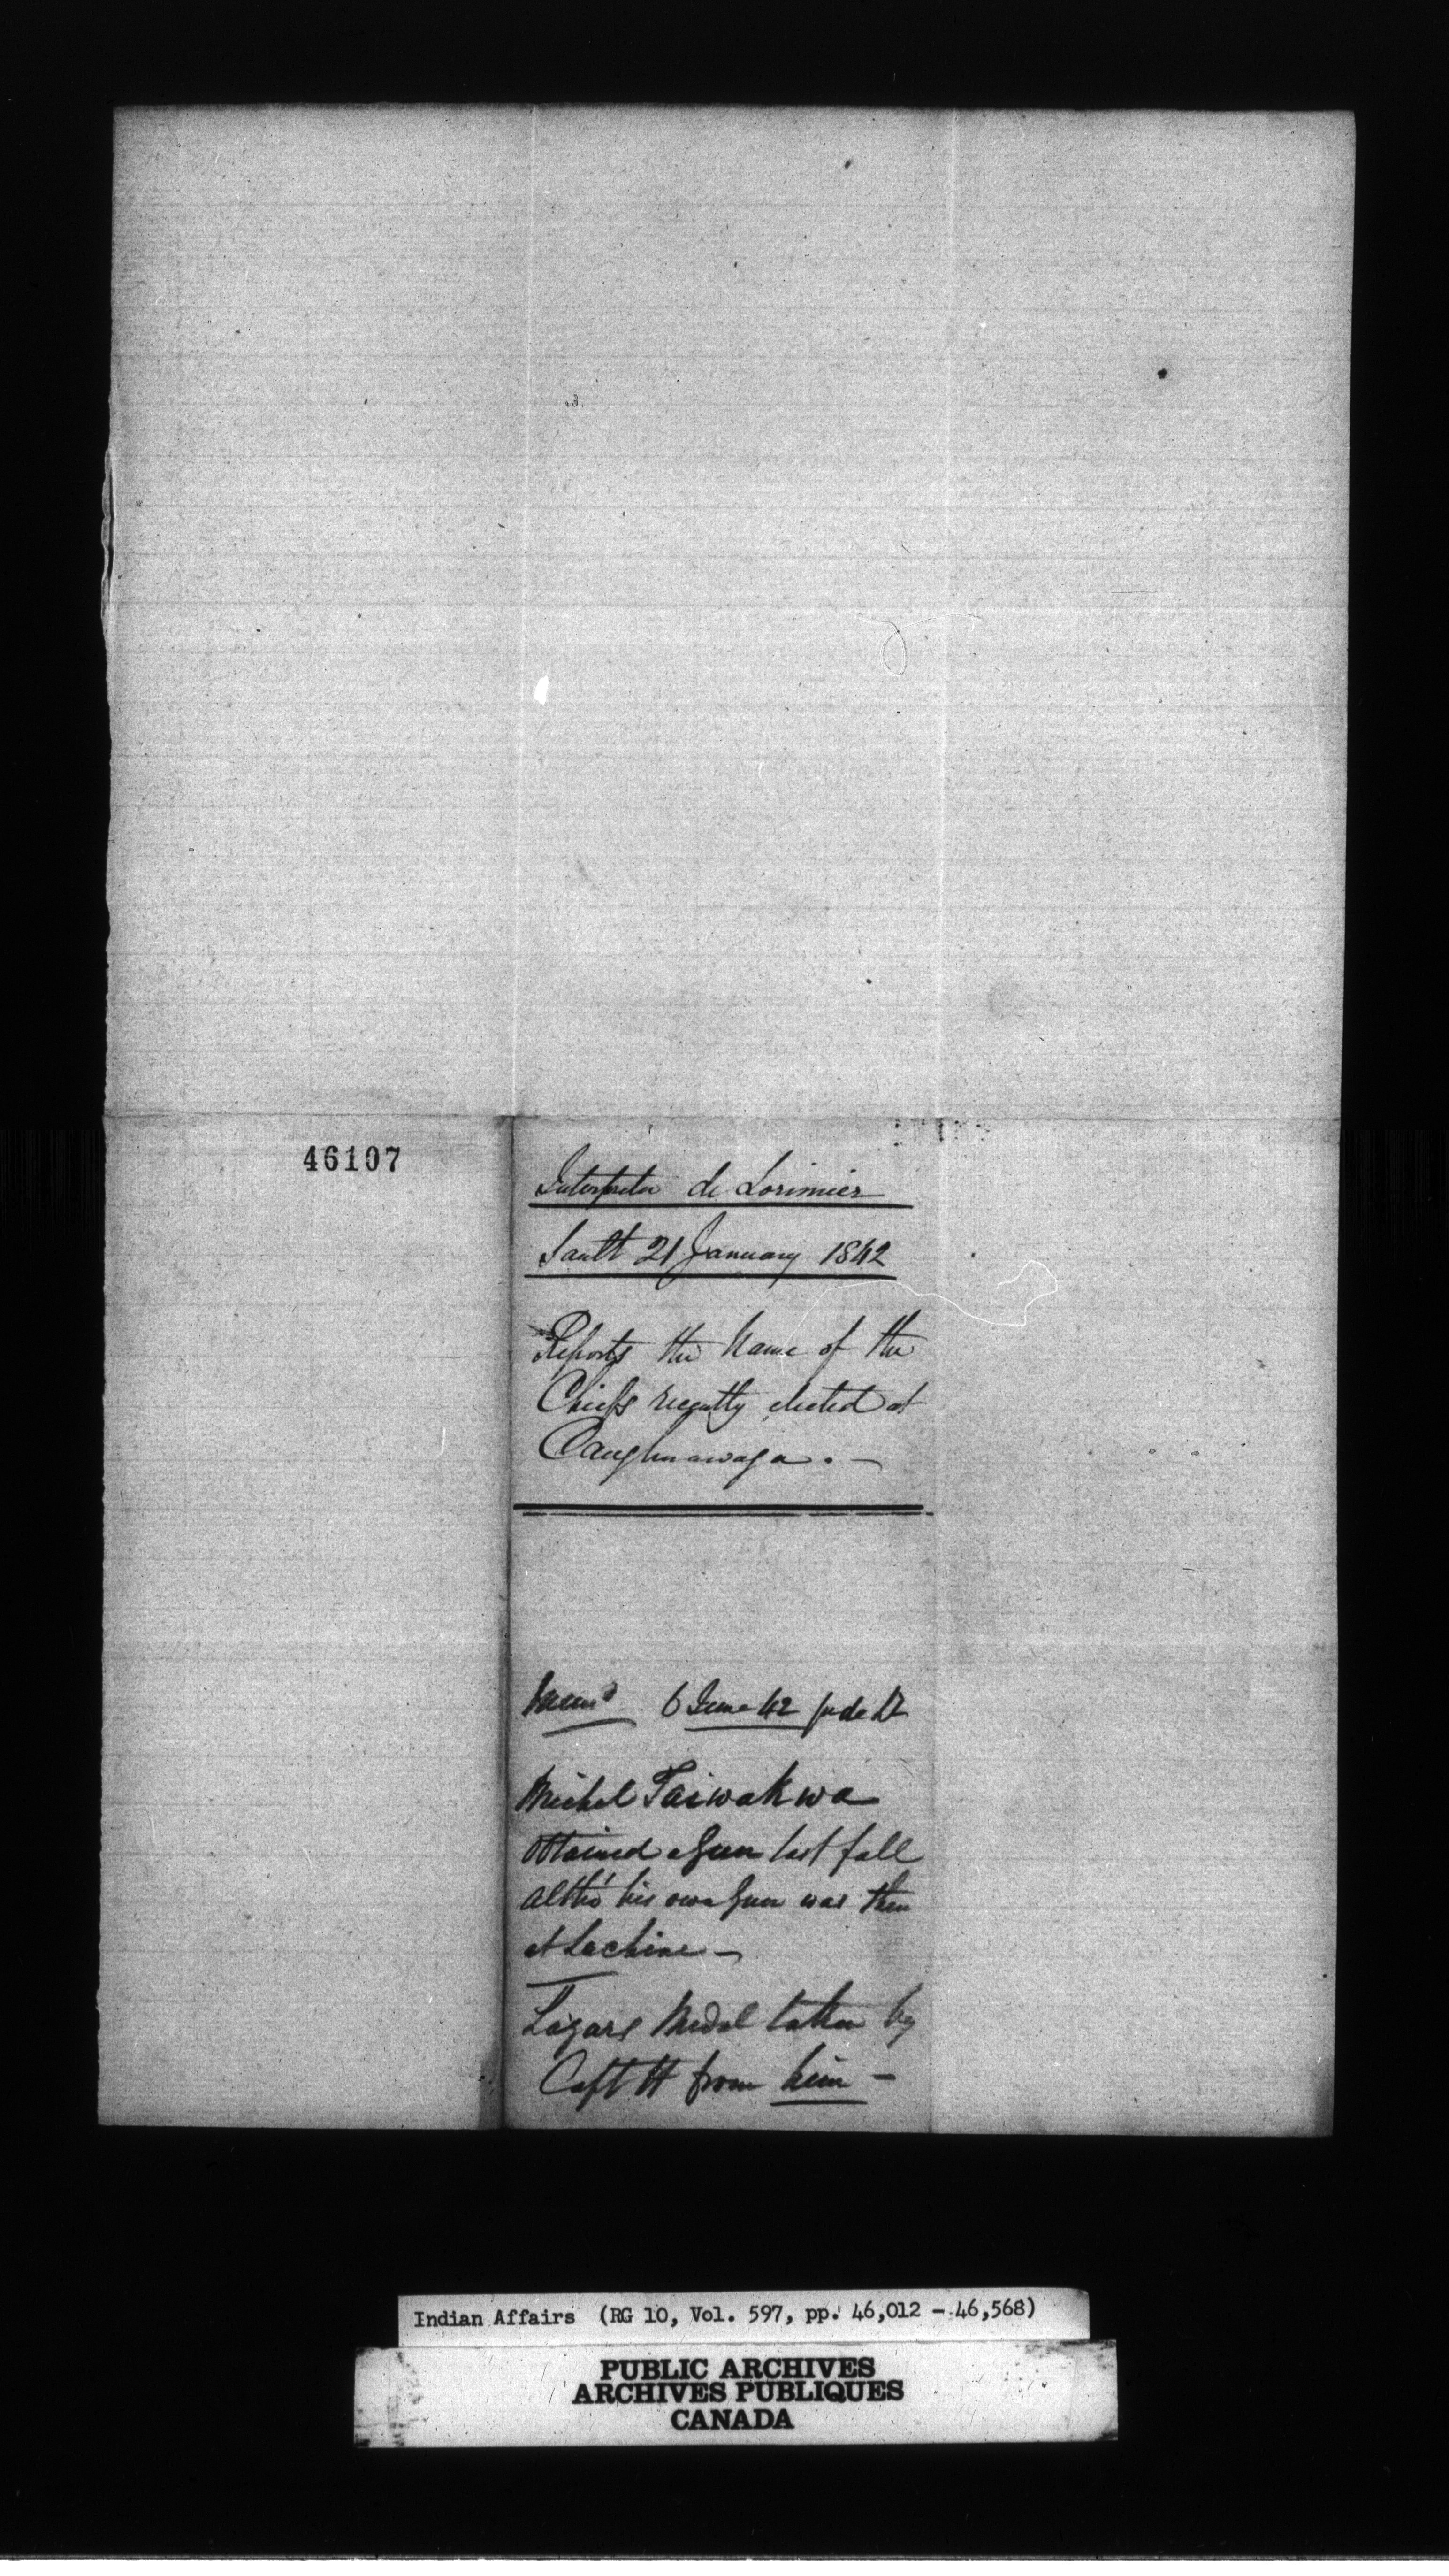 46107
Interpreter de Lorimier
Sault 21 January 1842
Reports the Name of the
Chiefs recently elected at
Caughnawaga. —
6 June 42
Michel Taiwakwa
obtained a Gun last fall
altho' his own Gun was then
at Lachine —
Lazare Medal taken by
Capt H from him —
Indian Affairs (RG 10, Vol. 597, pp. 46,012 - 46,568)
PUBLIC ARCHIVES
ARCHIVES PUBLIQUES
CANADA